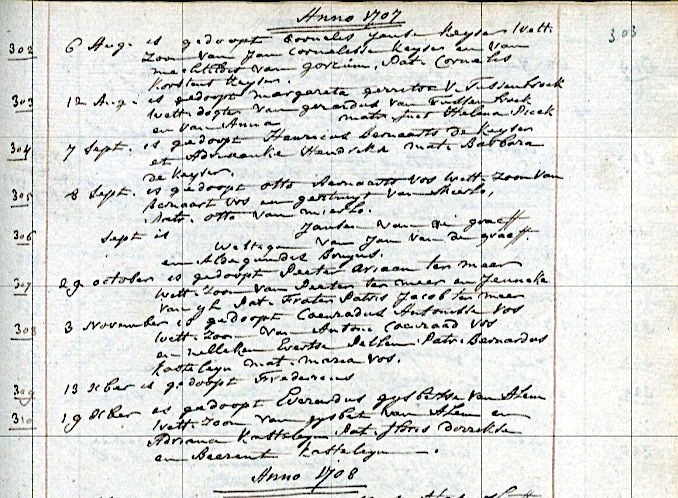 Anno 1707
303
302 6 Aug. is gedoopt Cornelis Janse Keyser Wett.
Zoon van Jan Cornelisse Keyser en van
van Gorcum, Pat. Cornelis
Keyser.
303 12 Aug. is gedoopt Margareta gerritse V. Tussenbroek
Wett. dogter van gerardus van Tussenbroek
en van Anna mat. Juf Helena Pieck
304 7 Sept. is gedoopt Henricus Bernaerts de Keyser
et Adriaenke Hendrickx mat. Barbara
de Keyser.
305 8 Sept. is gedoopt Otto Bernaerts Vos Wett. Zoon van
Bernaert Vos en geertruyt van Mierlo,
Patr. Otto van Mierlo.
306 Sept is Jansen van de graeff
Wettige van Jan van de graeff
en Aldegundis
307 29 october is gedoopt Peeter Ariaan ter meer
Wett. Zoon van Peeter ter meer en Jenneke
van Pat. Frater Patris Jacob ter meer
308 3 November is gedoopt Coenradus Antonisse Vos
Wett. Zoon van Antoni Coenraad Vos
en Nelleken Evertse Patr. Bernardus
Kasteleyn mat. Maria Vos.
309 13 Xber is gedoopt Fredericus
310 19 Xber is gedoopt Everardus gysbertse van Alem
Wett. Zoon van gysbert van Alem en
Adriana Kasteleyn. Pat. floris Dorrestse
en Beerent Kasteleyn.
Anno 1708